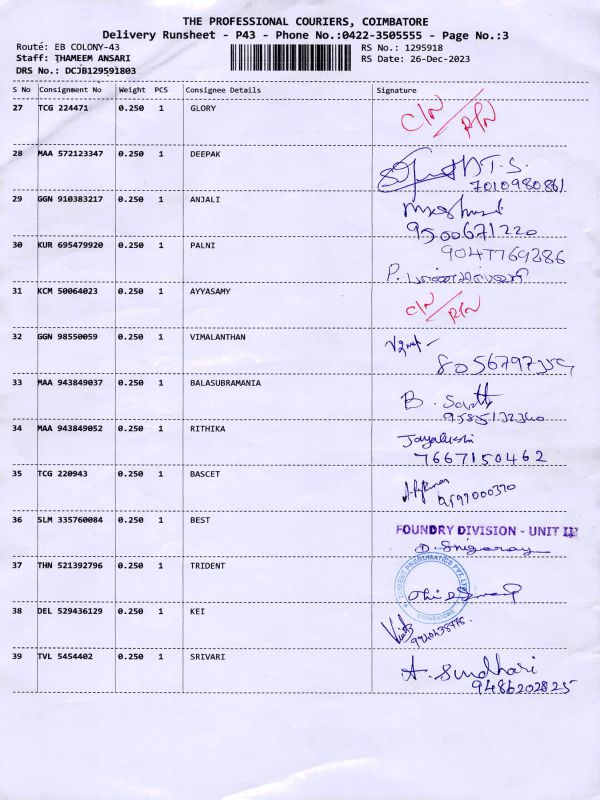 THE PROFESSIONAL COURIERS, COIMBATORE
Delivery Runsheet - P43 - Phone No.:0422-3505555 - Page No.:3
Route: EB COLONY-43
RS No.: 1295918
Staff: THAMEEM ANSARI
RS Date: 26-Dec-2023
DRS No.: DCJB129591803
S No Consignment No Weight PCS Consignee Details Signature
27 TCG 224471 0.250 1 GLORY C/N R/N
28 MAA 572123347 0.250 1 DEEPAK
7010980861
29 GGN 910383217 0.250 1 ANJALI
9500671220
30 KUR 695479920 0.250 1 PALNI
9047769286
31 KCM 50064023 0.250 1 AYYASAMY C/N R/N
32 GGN 98550059 0.250 1 VIMALANTHAN
33 MAA 943849037 0.250 1 BALASUBRAMANIA
34 MAA 943849052 0.250 1 RITHIKA
7667150462
35 TCG 220943 0.250 1 BASCET
36 SLM 335760084 0.250 1 BEST FOUNDRY DIVISION - UNIT III
37 THN 521392796 0.250 1 TRIDENT TRIDENT PNEUMATICS PVT. LTD. COIMBATORE
38 DEL 529436129 0.250 1 KEI
39 TVL 5454402 0.250 1 SRIVARI A. Sindhari
9486202825